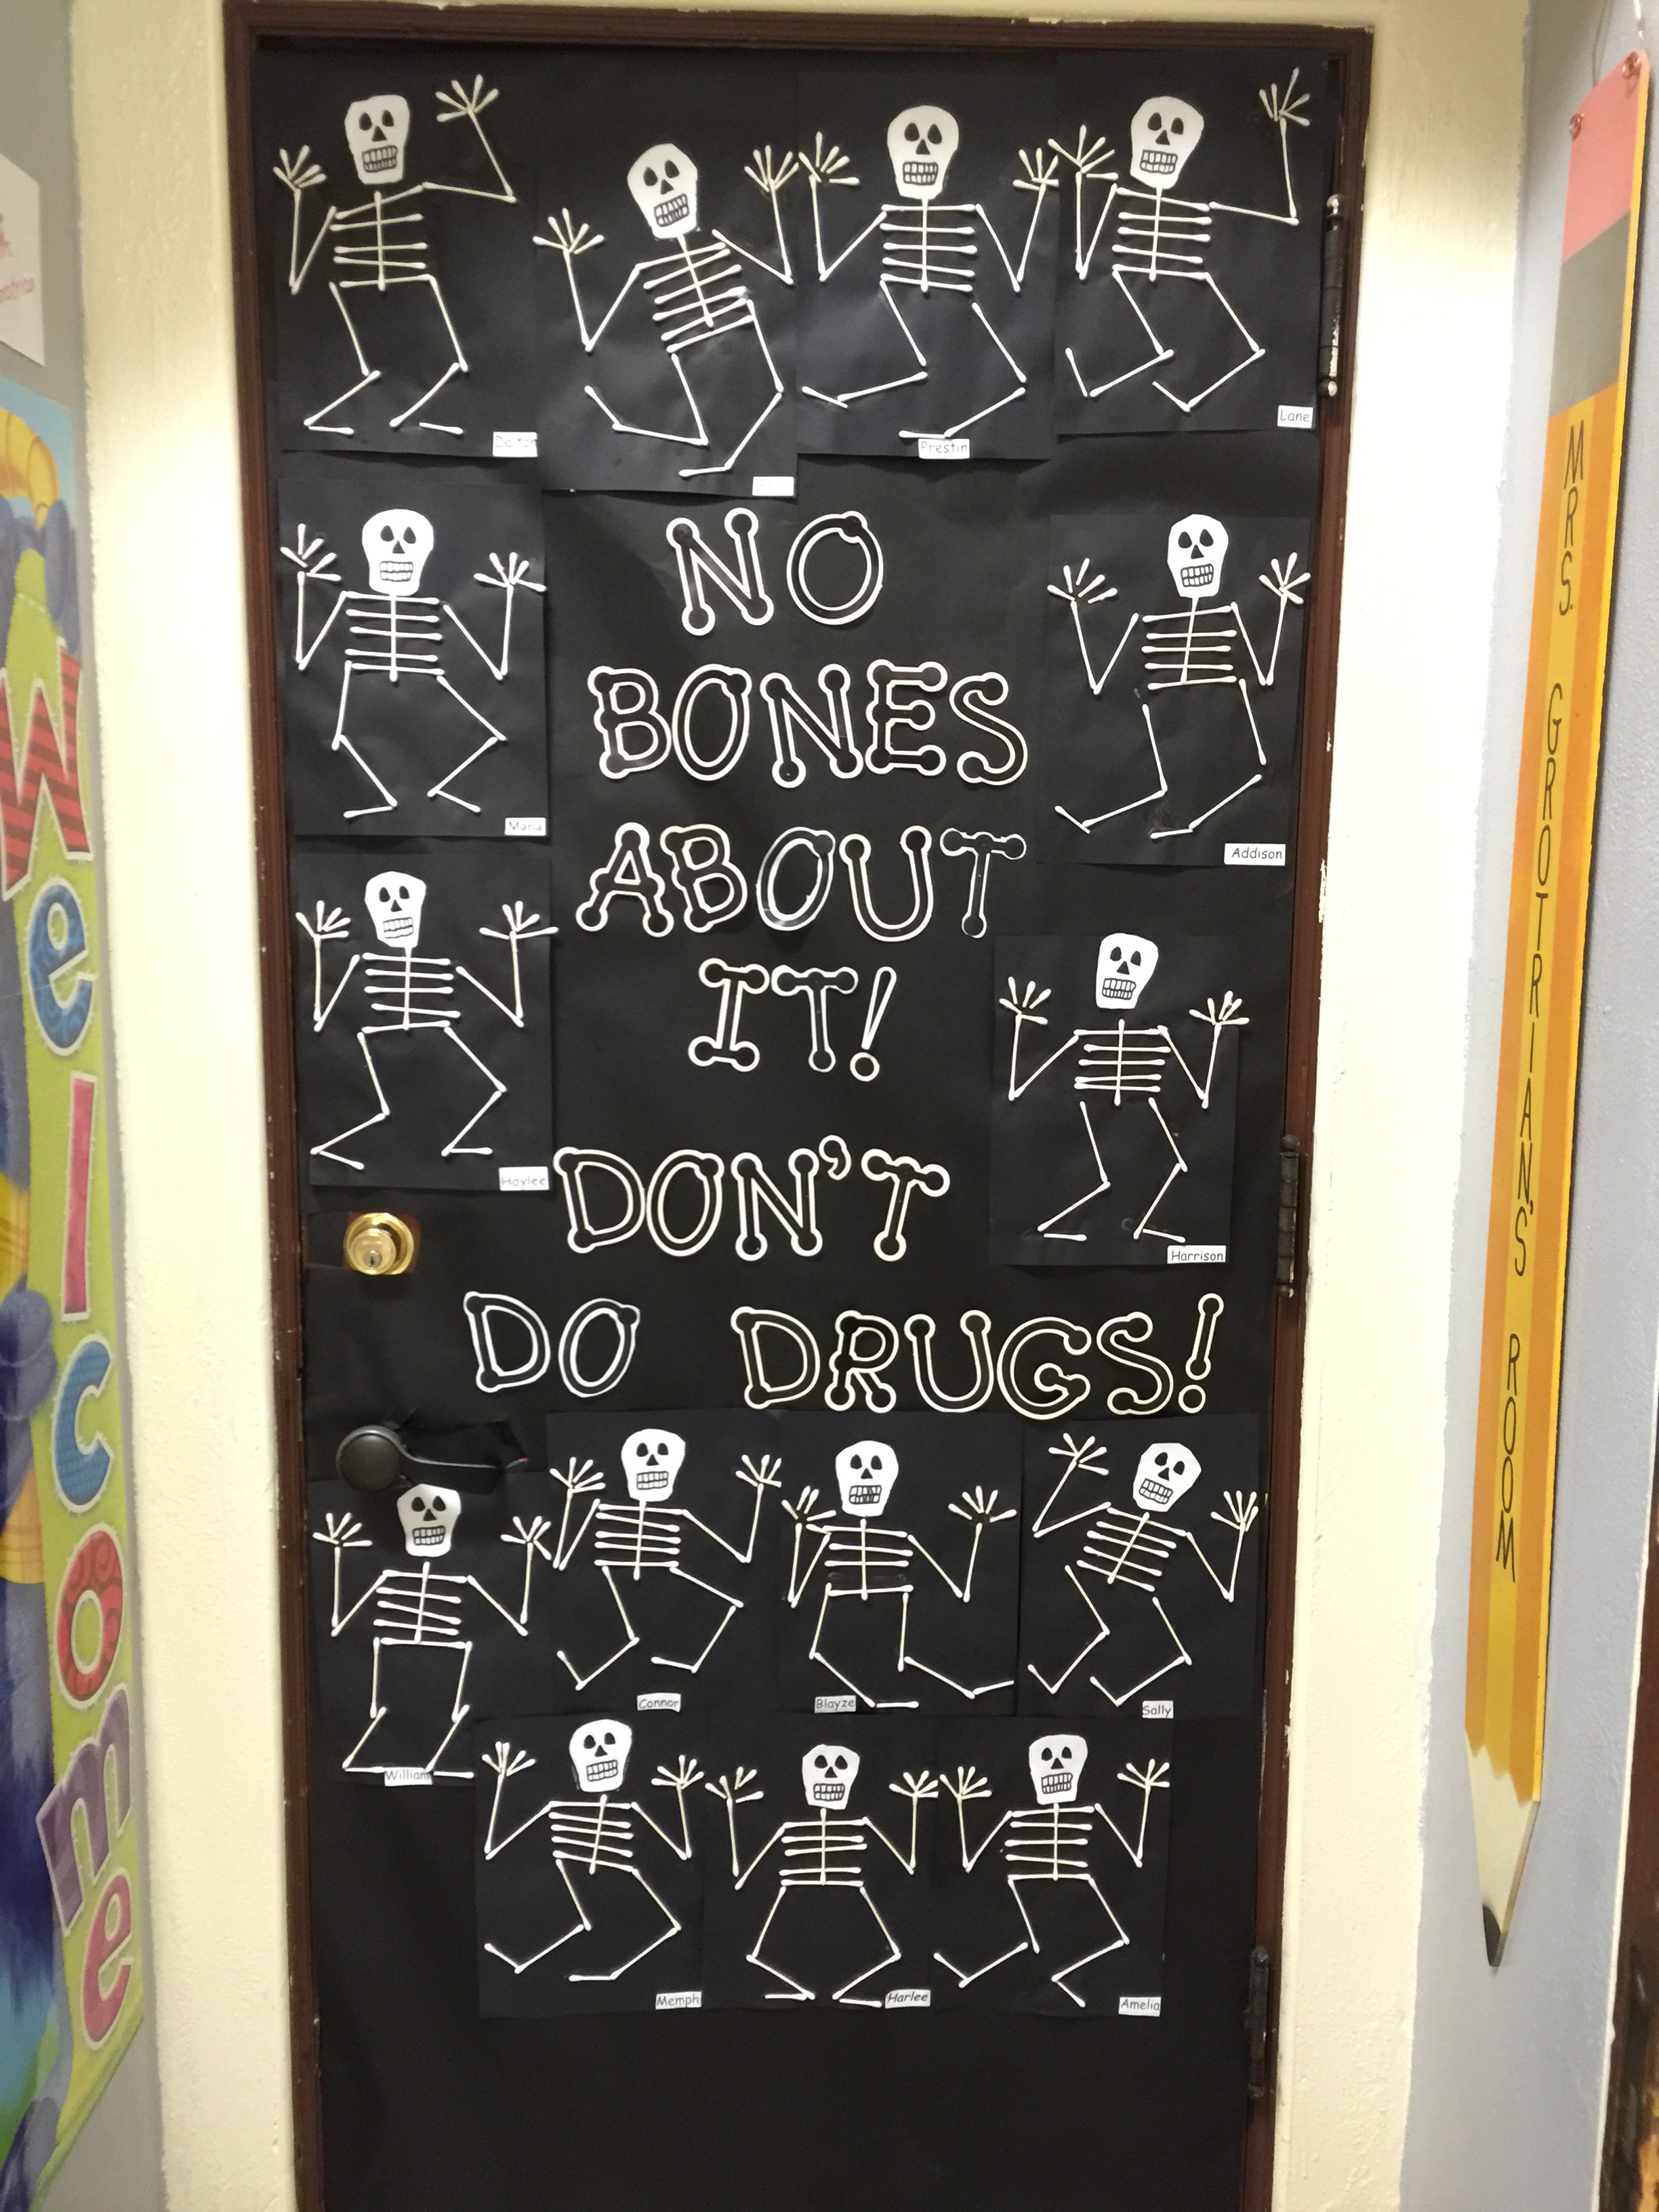 Dalton
Prestin
Lane
NO
BONES
ABOUT
IT!
DON'T
DO DRUGS!
Maria
Addison
Haylee
Harrison
William
Connor
Blayze
Sally
Memph
Harlee
Amelia
Welcome
MRS. GROTRIAN'S ROOM